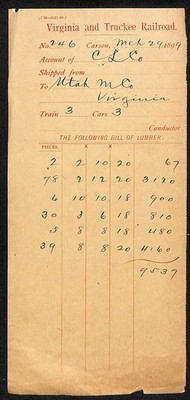 Virginia and Truckee Railroad.
No. 246 Carson, Mch 29 1899
Account of C L Co
Shipped from
To Utah M Co
Virginia
Train 3 Cars 3
Conductor
THE FOLLOWING BILL OF LUMBER:
PIECES. X X
2 2 10 20 67
78 2 12 20 3120
6 10 10 18 900
30 3 6 18 810
5 8 8 18 480
39 8 8 20 4160
9537